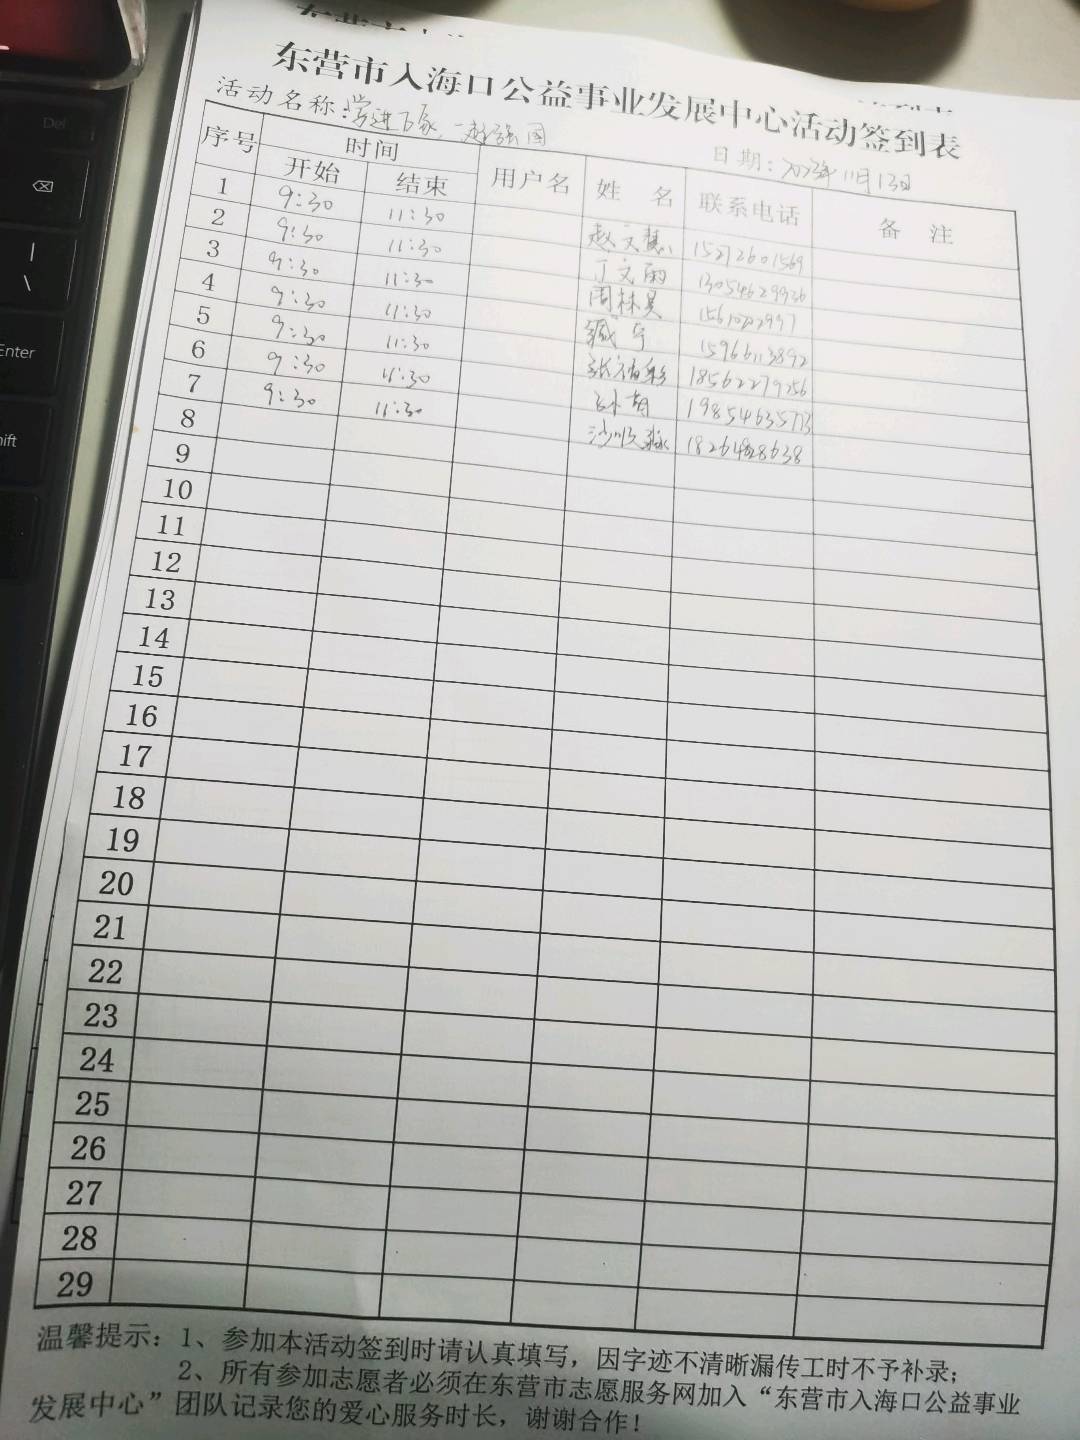 东营市入海口公益事业发展中心活动签到表
活动名称: 党进万家 强国 日期: 2023年11月13日
序号 时间 用户名 姓 名 联系电话 备 注
开始 结束
1 9:30 11:30 赵文慧 15272601569
2 9:30 11:30 丁文丽 13054629936
3 9:30 11:30 周林昊
4 9:30 11:30 臧宁 15966113892
5 9:30 11:30 18562279256
6 9:30 11:30 孙胡 19854635773
7 9:30 11:30
8
9
10
11
12
13
14
15
16
17
18
19
20
21
22
23
24
25
26
27
28
29
温馨提示: 1、参加本活动签到时请认真填写，因字迹不清晰漏传工时不予补录；
2、所有参加志愿者必须在东营市志愿服务网加入“东营市入海口公益事业
发展中心”团队记录您的爱心服务时长，谢谢合作！
Del
Enter